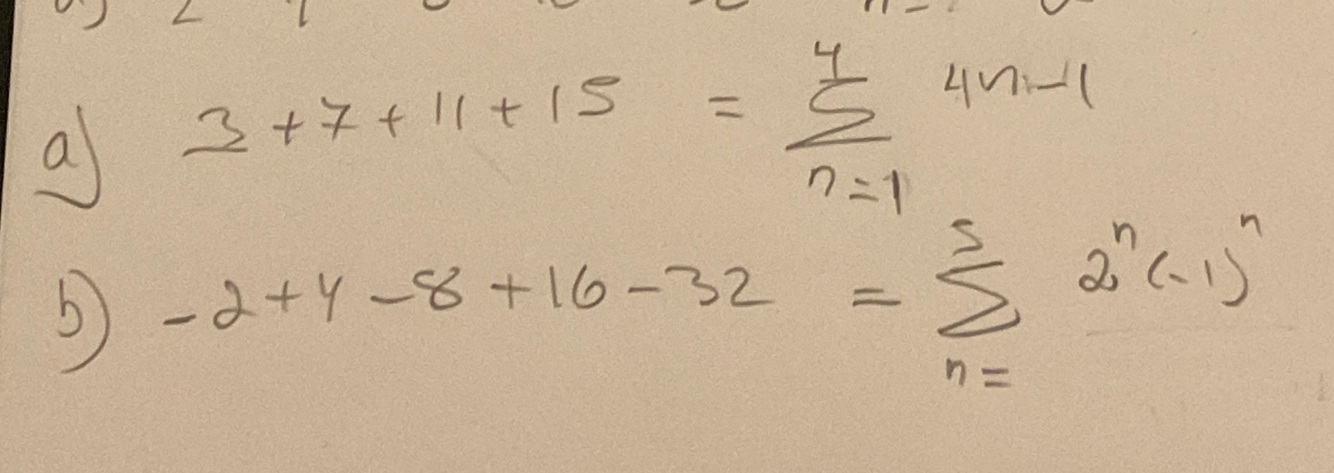 a) 3 + 7 + 11 + 15 = ∑_{n=1}^{4} 4n-1
b) -2 + 4 - 8 + 16 - 32 = ∑_{n=}^{5} 2^n (-1)^n